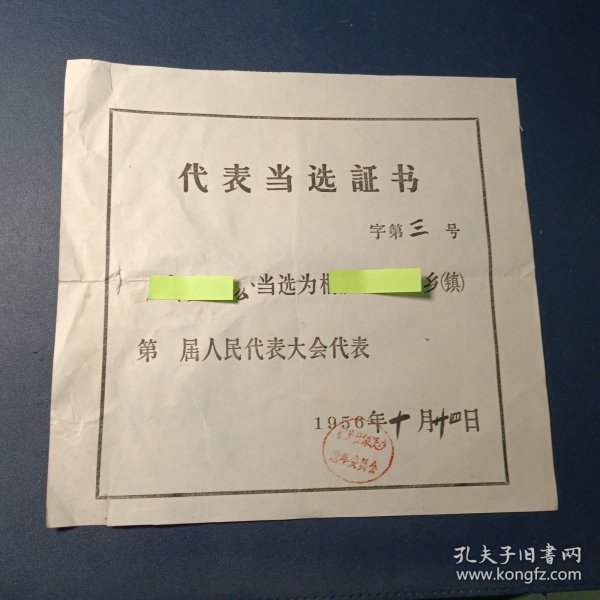 代表当选証书
字第三号
当选为
乡(镇)
第 届人民代表大会代表
1956年十月廿四日
选举委员会
孔夫子旧书网
www.kongfz.com